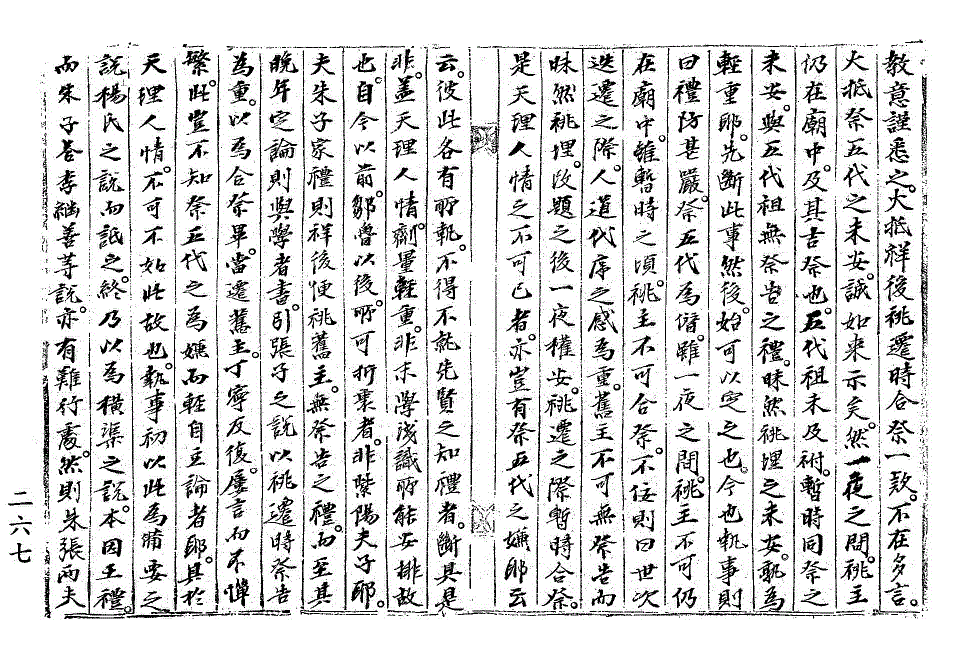 教意謹悉之。大抵祥後祧遷時合祭一款。不在多言。
大抵祭五代之未安。誠如來示矣。然一夜之間。祧主
仍在廟中。及其吉祭也。五代祖未及祔。暫時同祭之
未安。與五代祖無祭告之禮。昧然祧埋之未安。孰為
輕重耶。先斷此事然後。始可以定之也。今也執事則
曰禮防甚嚴。祭五代為僭。雖一夜之間。祧主不可仍
在廟中。雖暫時之頃。祧主不可合祭。不佞則曰世次
迭遷之際。人道代序之感為重。舊主不可無祭告而
昧然祧埋。改題之後一夜權安。祧遷之際暫時合祭。
是天理人情之不可已者。亦豈有祭五代之嫌耶云
云。彼此各有所執。不得不就先賢之知禮者。斷其是
非。盖天理人情。劑量輕重。非末學淺識所能安排故
也。自今以前。鄒魯以後。所可折衷者。非紫陽夫子耶。
夫朱子家禮則祥後便祧舊主。無祭告之禮。而至其
晚年定論則與學者書。引張子之說以祧遷時祭告
為重。以為合祭畢。當遷舊主。丁寧反復。屢言而不憚
繁。此豈不知祭五代之為嫌而輕自立論者耶。具於
天理人情。不可不如此故也。執事初以此為莆要之
說楊氏之說而詆之。終乃以為橫渠之說。本因王禮。
而朱子答李繼善等說。亦有難行處。然則朱張兩夫
二六七